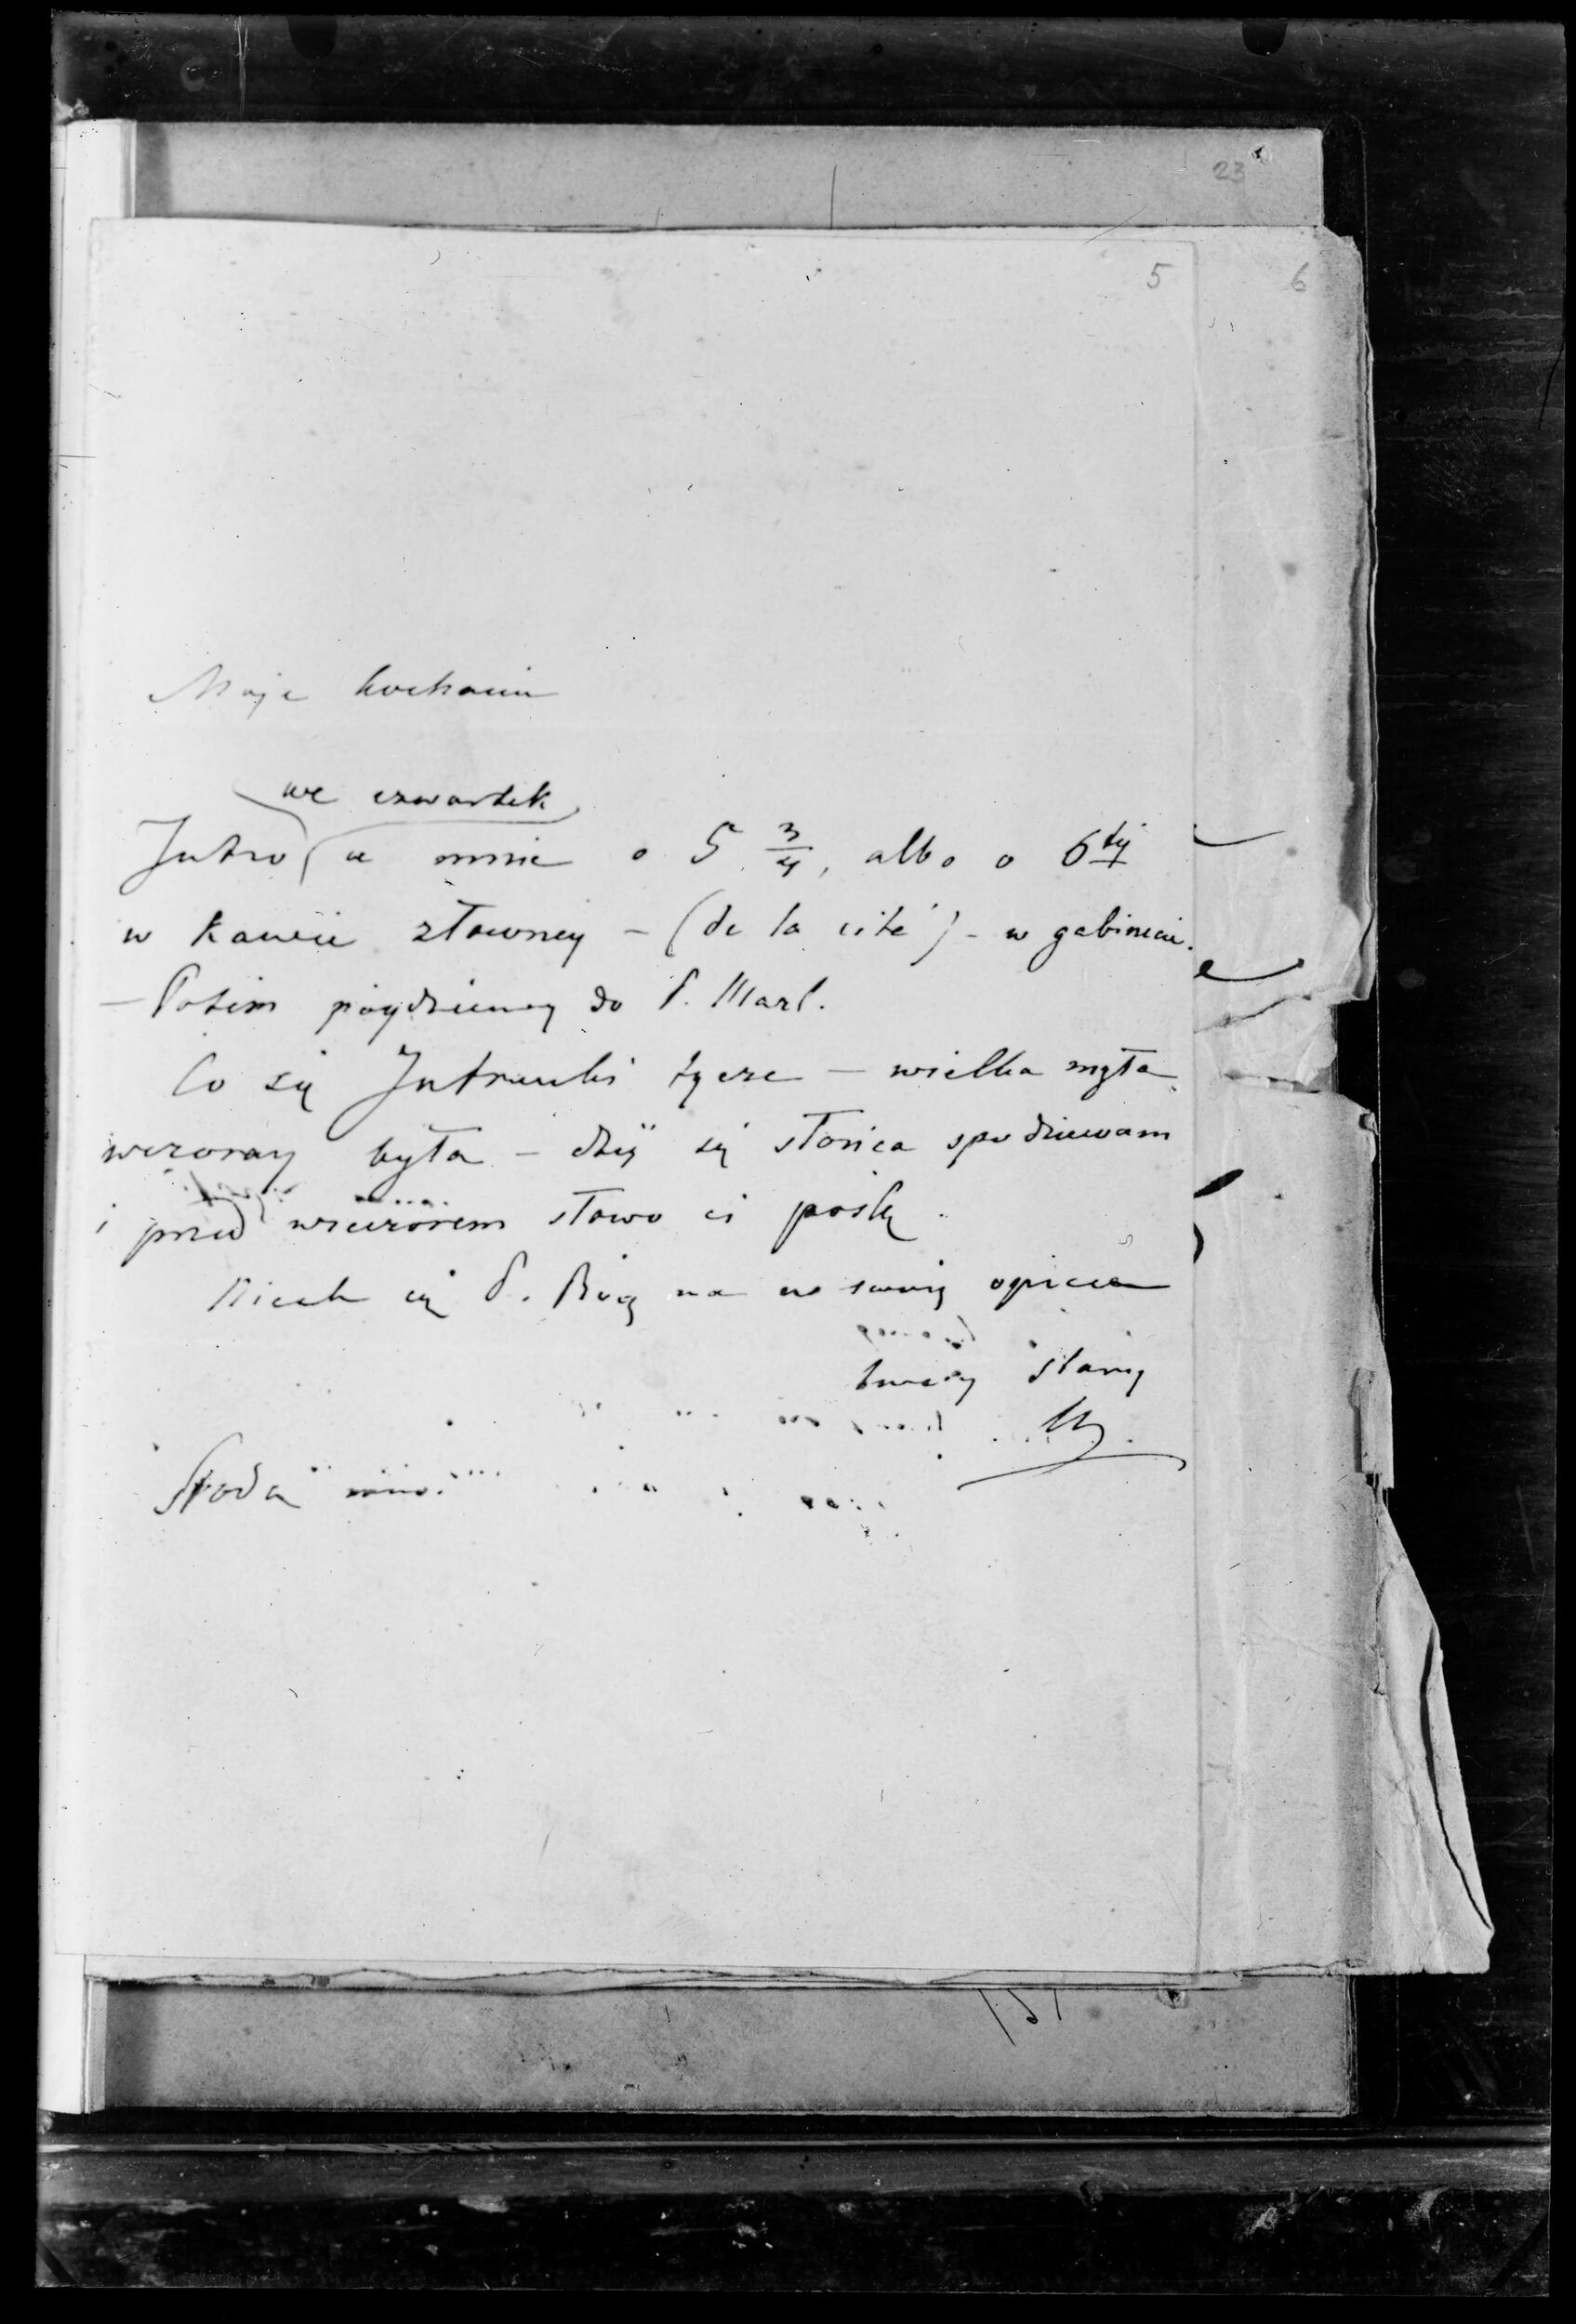 23
5
6
Moje kochanie
we czwartek
Jutro u mnie o 5 3/4, albo o 6tej
w kawie złowney – (de la cité) – w gabinecie.
– Potem póydziemy do P. Marl.
Co się Jutrzenki tycze – wielka mgła
wczoray była – dziś się słońca spodziewam
i przed wieczorem słowo ci poślę.
Niech cię P. Bóg ma w swoiey opiece
twóy stary
Środa